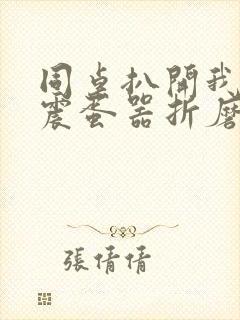 同桌扒開我
震蛋器折磨
張倩倩